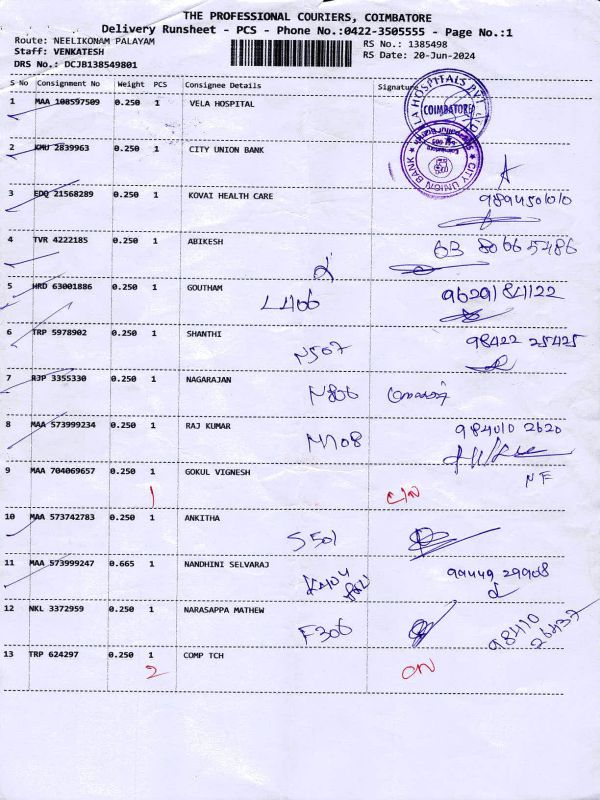 THE PROFESSIONAL COURIERS, COIMBATORE
Delivery Runsheet - PCS - Phone No.:0422-3505555 - Page No.:1
Route: NEELIKONAM PALAYAM
RS No.: 1385498
Staff: VENKATESH
RS Date: 20-Jun-2024
DRS No.: DCJB138549801
S No Consignment No Weight PCS Consignee Details Signature
1 MAA 108597509 0.250 1 VELA HOSPITAL
COIMBATORE
2 KMU 2839963 0.250 1 CITY UNION BANK
CITY UNION BANK
3 EDQ 21568289 0.250 1 KOVAI HEALTH CARE
9894501010
4 TVR 4222185 0.250 1 ABIKESH
63 80665486
5 HRD 63001886 0.250 1 GOUTHAM
L406 9629184122
6 TRP 5978902 0.250 1 SHANTHI
N507 98422 25425
7 RJP 3355330 0.250 1 NAGARAJAN
N806
8 MAA 573999234 0.250 1 RAJ KUMAR
N708 984010 2620
9 MAA 704069657 0.250 1 GOKUL VIGNESH
NF
1
10 MAA 573742783 0.250 1 ANKITHA
S501
11 MAA 573999247 0.665 1 NANDHINI SELVARAJ
K404 99449 29908
12 NKL 3372959 0.250 1 NARASAPPA MATHEW
F306 98410 26437
13 TRP 624297 0.250 1 COMP TCH
2